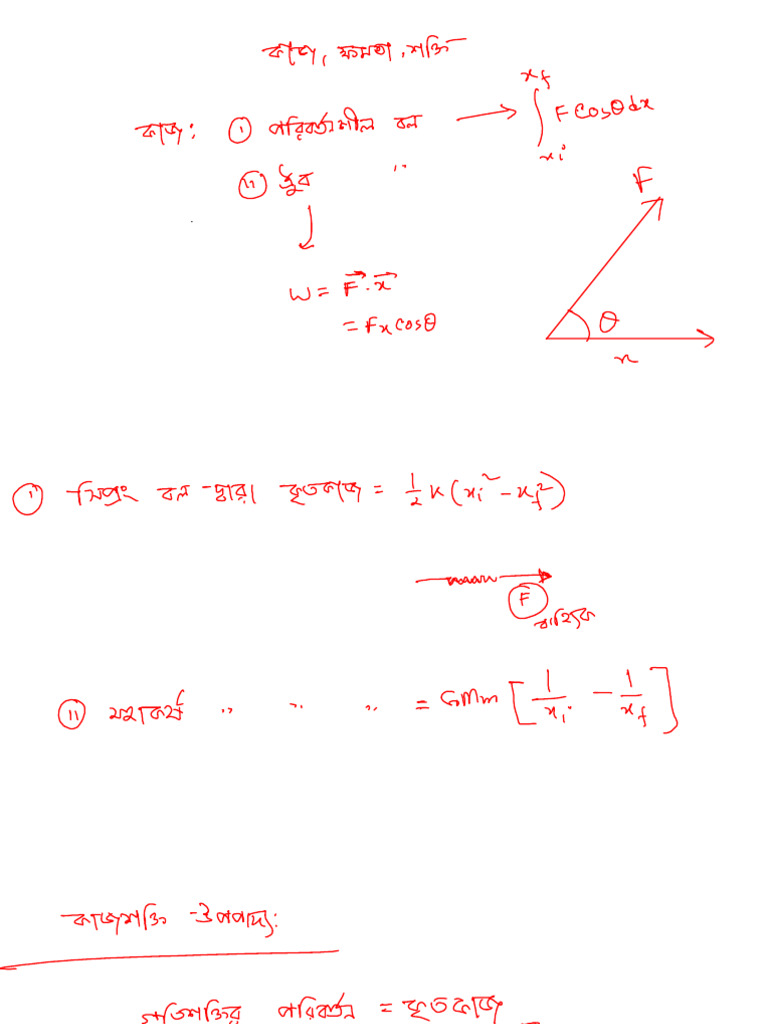 কাজ, ক্ষমতা, শক্তি
কাজ: (i) পরিবর্তনশীল বল → ∫_{xi}^{xf} F cosθ dx
(ii) ধ্রুব "
↓
W = F⃗ . x⃗
= Fx cosθ
F
θ
x
(i) স্প্রিং বল দ্বারা কৃতকাজ = 1/2 K (xi² - xf²)
F
বাহ্যিক
(ii) মহাকর্ষ " " " = GMm [1/xi - 1/xf]
কাজশক্তি উপপাদ্য:
গতিশক্তির পরিবর্তন = কৃতকাজ